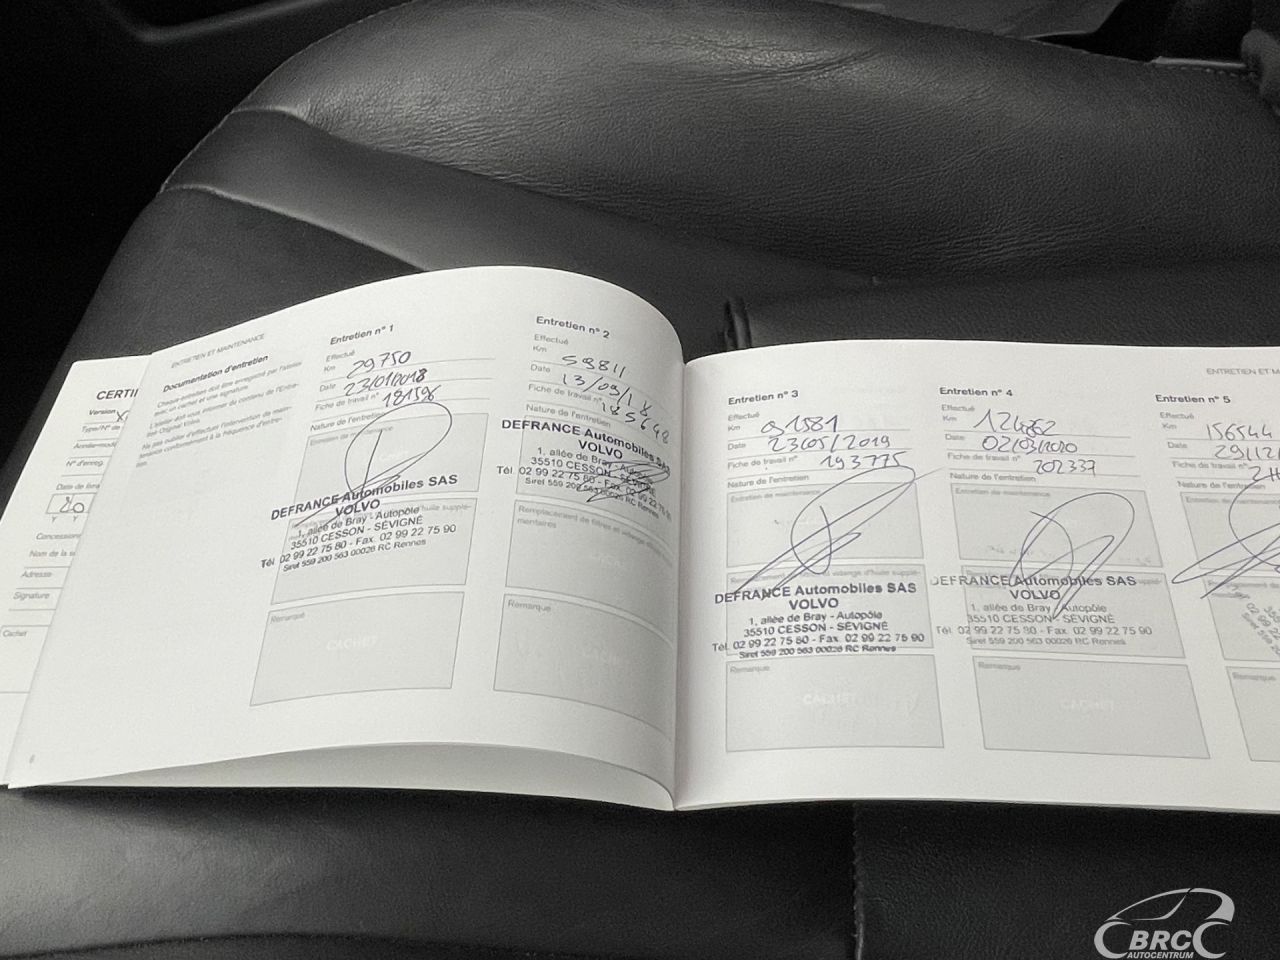 CERTIFI
Version
Type/N° de
Année-modè
N° d'enreg.
Date de livra
20
Y Y
Concession
Nom de la s
Adresse
Signature
Cachet
ENTRETIEN ET MAINTENANCE
Documentation d'entretien
Chaque entretien doit être enregistré par l'atelier
avec un cachet et une signature.
6
Entretien n° 1
Effectué
Km 29750
Date 23/01/2018
Fiche de travail n° 181596
Nature de l'entretien
Entretien de maintenance
DEFRANCE Automobiles SAS
VOLVO
1, allée de Bray - Autopôle
35510 CESSON - SÉVIGNÉ
Tél. 02 99 22 75 80 - Fax. 02 99 22 75 90
Siret 559 200 563 00026 RC Rennes
Remarque
CACHET
Entretien n° 2
Effectué
Km 59811
Date 13/09/18
Fiche de travail n° 185648
Nature de l'entretien
DEFRANCE Automobiles SAS
VOLVO
1, allée de Bray - Autopôle
35510 CESSON - SÉVIGNÉ
Tél. 02 99 22 75 80 - Fax. 02 99 22 75 90
Siret 559 200 563 00026 RC Rennes
Remplacement de filtres et vidange d'huile supplé-
mentaires
Remarque
Entretien n° 3
Effectué
Km 91581
Date 23/05/2019
Fiche de travail n° 193775
Nature de l'entretien
Entretien de maintenance
DEFRANCE Automobiles SAS
VOLVO
1, allée de Bray - Autopôle
35510 CESSON - SÉVIGNÉ
Tél. 02 99 22 75 80 - Fax. 02 99 22 75 90
Siret 559 200 563 00026 RC Rennes
Remarque
CACHET
Entretien n° 4
Effectué
Km
Date 02/03/2020
Fiche de travail n° 202337
Nature de l'entretien
Entretien de maintenance
DEFRANCE Automobiles SAS
VOLVO
1, allée de Bray - Autopôle
35510 CESSON - SÉVIGNÉ
Tél. 02 99 22 75 80 - Fax. 02 99 22 75 90
Siret 559 200 563 00026 RC Rennes
Remarque
CACHET
ENTRETIEN ET M
Entretien n° 5
Effectué
Km 156544
Date 29/12/
Fiche de travail n°
Nature de l'entretien
Entretien de maintenance
Remarque
BRC
AUTOCENTRUM